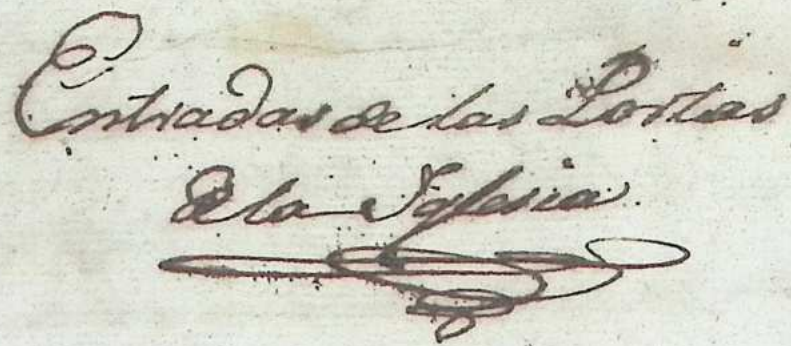 Entradas de las
de la Iglesia